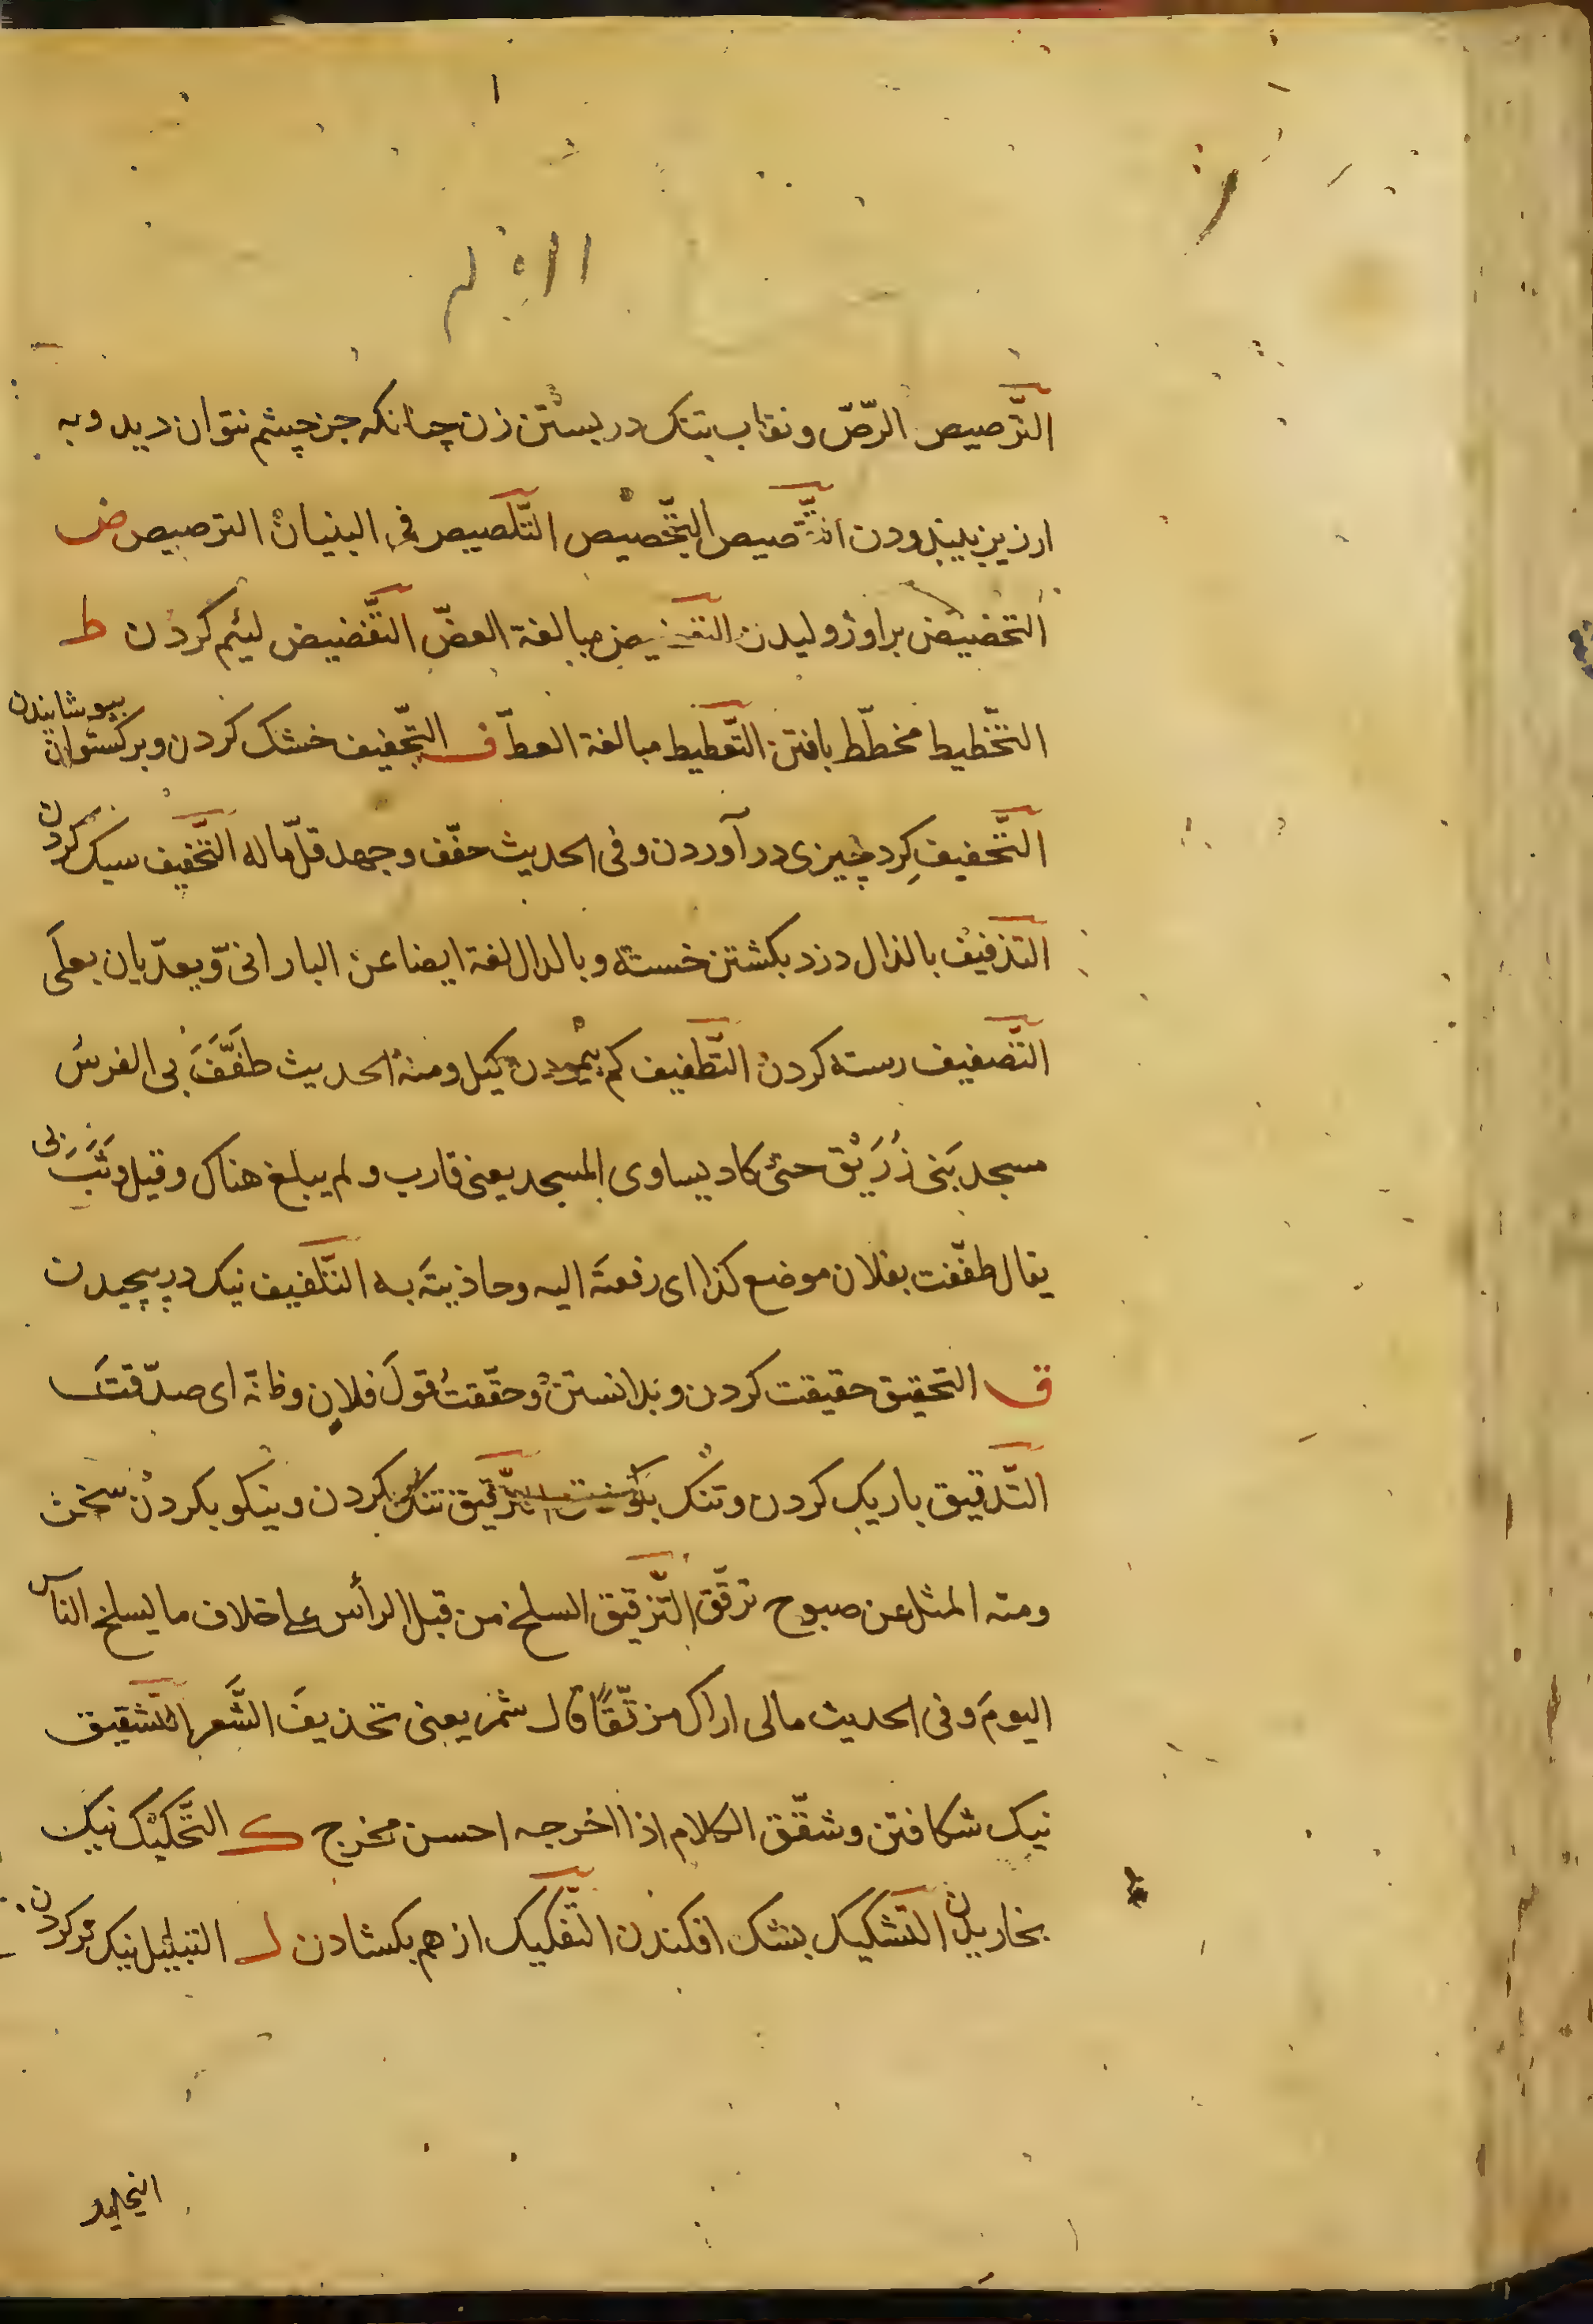 التَّرصیص الرّصّ و نقاب تنک دربستن زن چنانکه جز چشم نتوان دید و به
ارزیز بیندودن التَّخصیص التَّلصیص فی البنیان الترصیص ض
التحضیض براوژولیدن مبالغة العضّ التَّفضیض لئیم کردن ط
التَّخطیط مخطّط بافتن التَّعطیط مبالغة العطّ ف التَّجفیف خشک کردن و برکستوان بپوشانیدن
التَّحفیف کِرد چیزی درآوردن و فی الحدیث حفّف و جهد قلّ ماله التَّخفیف سبک کردن
التَّذفیف بالذال دزد بکشتن خسته و بالدال لغة ایضا عن البارانیّ و یعدّیان بعلَی
التَّصفیف رسته کردن التَّطفیف کم پیمودن کیل و منه الحدیث طفَّفَ بی الفرسُ
مسجد بَنی زُرَیْق حتی کاد یساوی المسجد یعنی قارب و لم یبلغ هناک و قیل وَثَبَ بی
یقال طفّفت بفلان موضع کذا ای رفعته الیه و حاذیته به التَّلفیف نیک درپیچیدن
ق التحقیق حقیقت کردن و بدانستن و حقّقتُ قولَ فلانٍ و ظنّه ای صدّقتَ
التَّدقیق باریک کردن و تنک التَّرقیق تنک کردن و نیکو بکردن سخن
و منه المثل عن صبوح ترقّق التَّزقیق السلخ من قبل الرأس علی خلاف ما یسلخ الناس
الیومَ و فی الحدیث مالی اراک مزقّقًا قال شمر یعنی تحذیفَ الشَّعر التَّشقیق
نیک شکافتن و شقّق الکلام اذا اخرجه احسن مخرج ک التَّحکیک نیک
بخاریدن التَّشکیک بشک افکندن التَّفکیک از هم بکشادن ل التبلیل نیک تر کردن